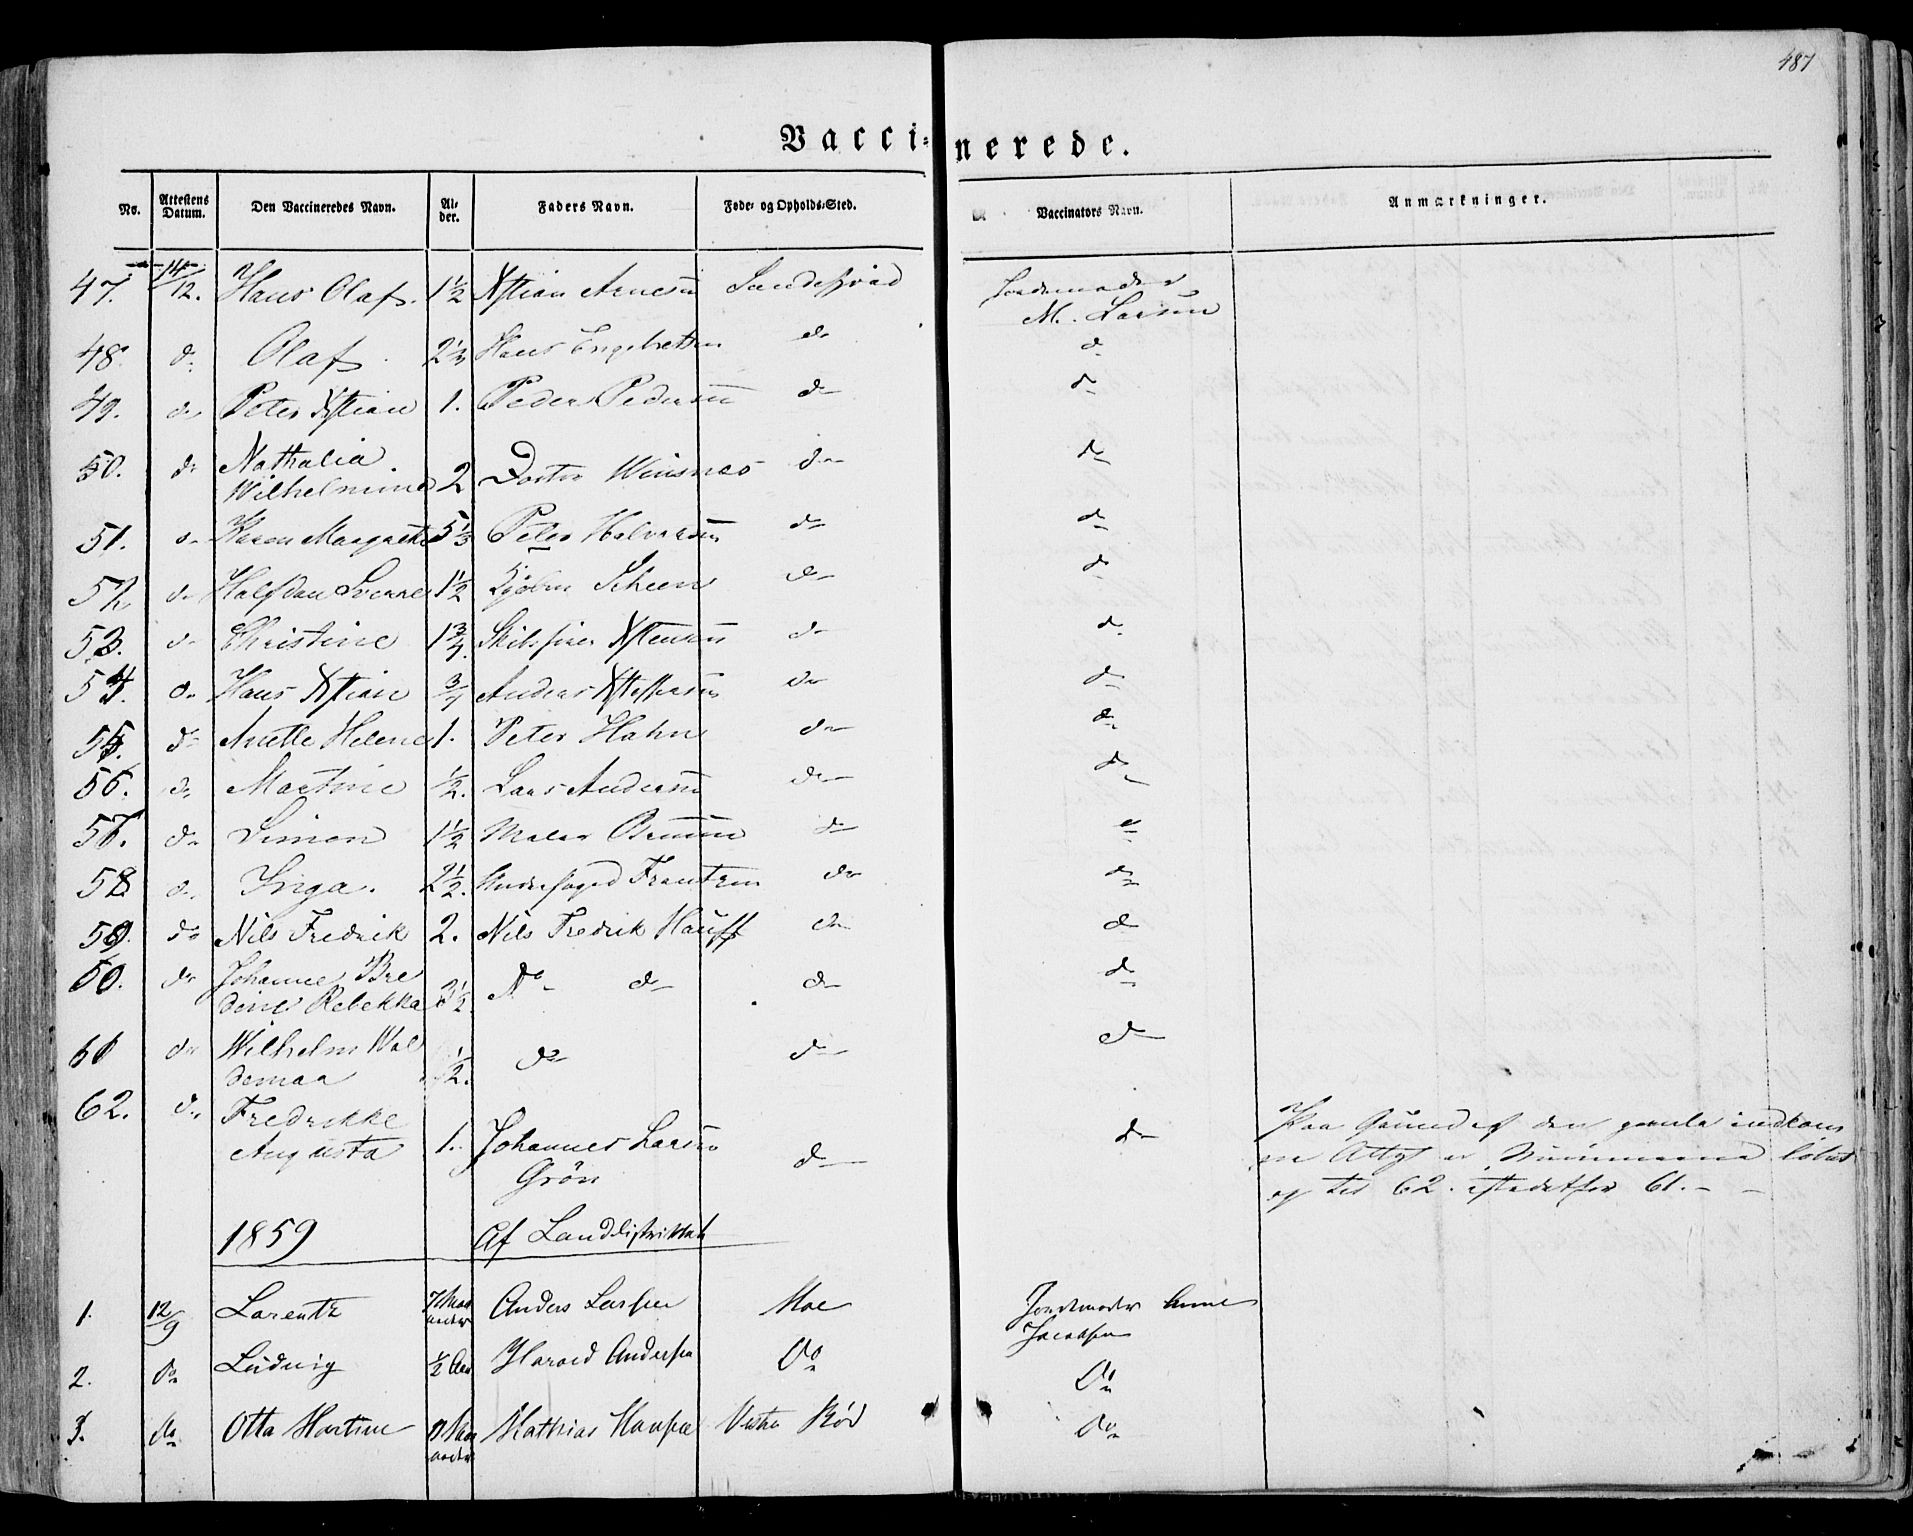 487
Vaccinerede.
No. Attestens Datum. Den Vaccineredes Navn. Alder. Faders Navn. Føde- og Opholds-Sted. Vaccinators Navn. Anmærkninger.
47. 14/12. Hans Olaf. 1 1/2 Xstian Arnesen Sandefjord Jordemoder
M. Larsen
48. do Olaf. 2 1/2 Hans Engebretsen do do
49. do Peter Xstian 1. Peder Pedersen do do
50. do Nathalia
Wilhelmine 2 Doctor Winsnes do do
51. do Karen Margrethe 5 1/2 Peter Halvorsen do do
52. do Halfdan Sverre 1 1/2 Scheen do do
53. do Christine 1 3/4. Xstensen do do
54. do Hans Xstian 3/4 Andreas do do
55. do Anette Helene 1. Peter Hahn do do
56. do Martine 1/2. Lars Andersen do do
57. do Simon 1 1/2 Maler do do
58 do Inga. 2 1/2. Frantzen do do
59. do Nils Fredrik 2. Nils Fredrik Hauff do do
60. do Johanne Bre
dine Rebekka 3 1/2. Do do do do
61 do Wilhelm Wal
demar 1/2. do do do
62. do Fredrikke
Augusta 1. Johannes Larsen
Grön do do
Paa Grund af den gamle indkom
ne Attest er Numerne løbet
op til 62. istedetfor 61. - -
1859 Af Landdistriktet
1. 12/9 Lorentz 7 Maa
neder Anders Larsen Moe Jordemoder Anne
Jacobsen
2. Do Ludvig 1/2 Aar Harald Andersen Do Do
3. Do Otto Martin Maa
neder Mathias Hansen Vestre Rød Do